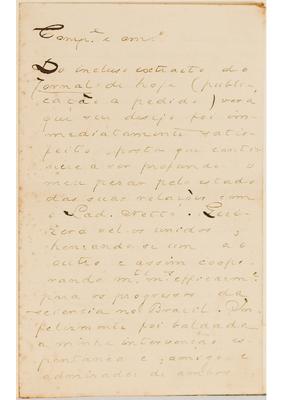 Comp.e e am.o
Do incluso extracto do
Jornal de hoje (publi-
cação a pedido) verá
que seu desejo foi im-
mediatamente satis-
feito, posto que conti-
nue a ser profundo o
meu pesar pelo estado
das suas relações com
o Lad. Netto. Qui-
zera vel-os unidos,
honrando-se um ao
outro e assim coope-
rando m.to m.s efficazm.e
para os progressos da
sciencia no Brazil. In-
felizmente foi baldada
a minha intervenção es-
pontanea e, amigo e
admirador de ambos